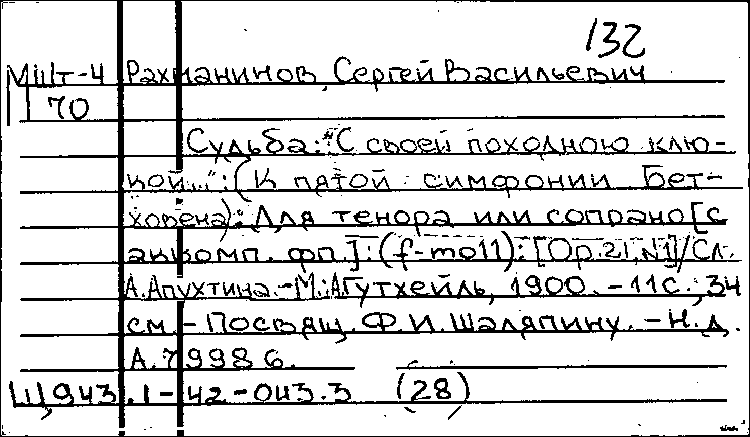 132
МШт-4 Рахманинов, Сергей Васильевич
П 70
Судьба: "С своей походною клю-
кой...": (К пятой симфонии Бет-
ховена): Для тенора или сопрано [с
аккомп. фп.]: (f-moll): [Op.21, N1]/Сл.
А.Апухтина.-М.: А.Гутхейль, 1900. - 11с.; 34
см. - Посвящ. Ф.И.Шаляпину. - Н.д.
А.7998 Г.
Щ943.1-42-043.3 (28)